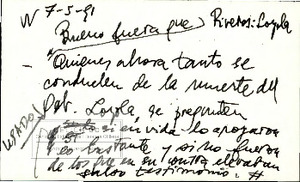 W 7-5-91
Bueno fuera que Riveros: Loyola
- "Quienes ahora tanto se
conduelen de la muerte del
Dob. Loyola, se pregunten
si en vida lo apoyaron
lo bastante y si no fueron
de los que en su contra elevaban
falso testimonio. #
USADO